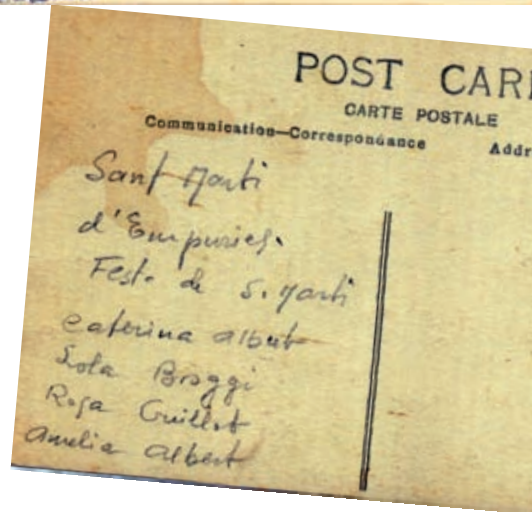 POST CAR
CARTE POSTALE
Communication—Correspondance
Addr
Sant Marti
d'Empuries.
Festa de S. Marti
Caterina Albert
Lola
Rosa Guillot
Amelia Albert